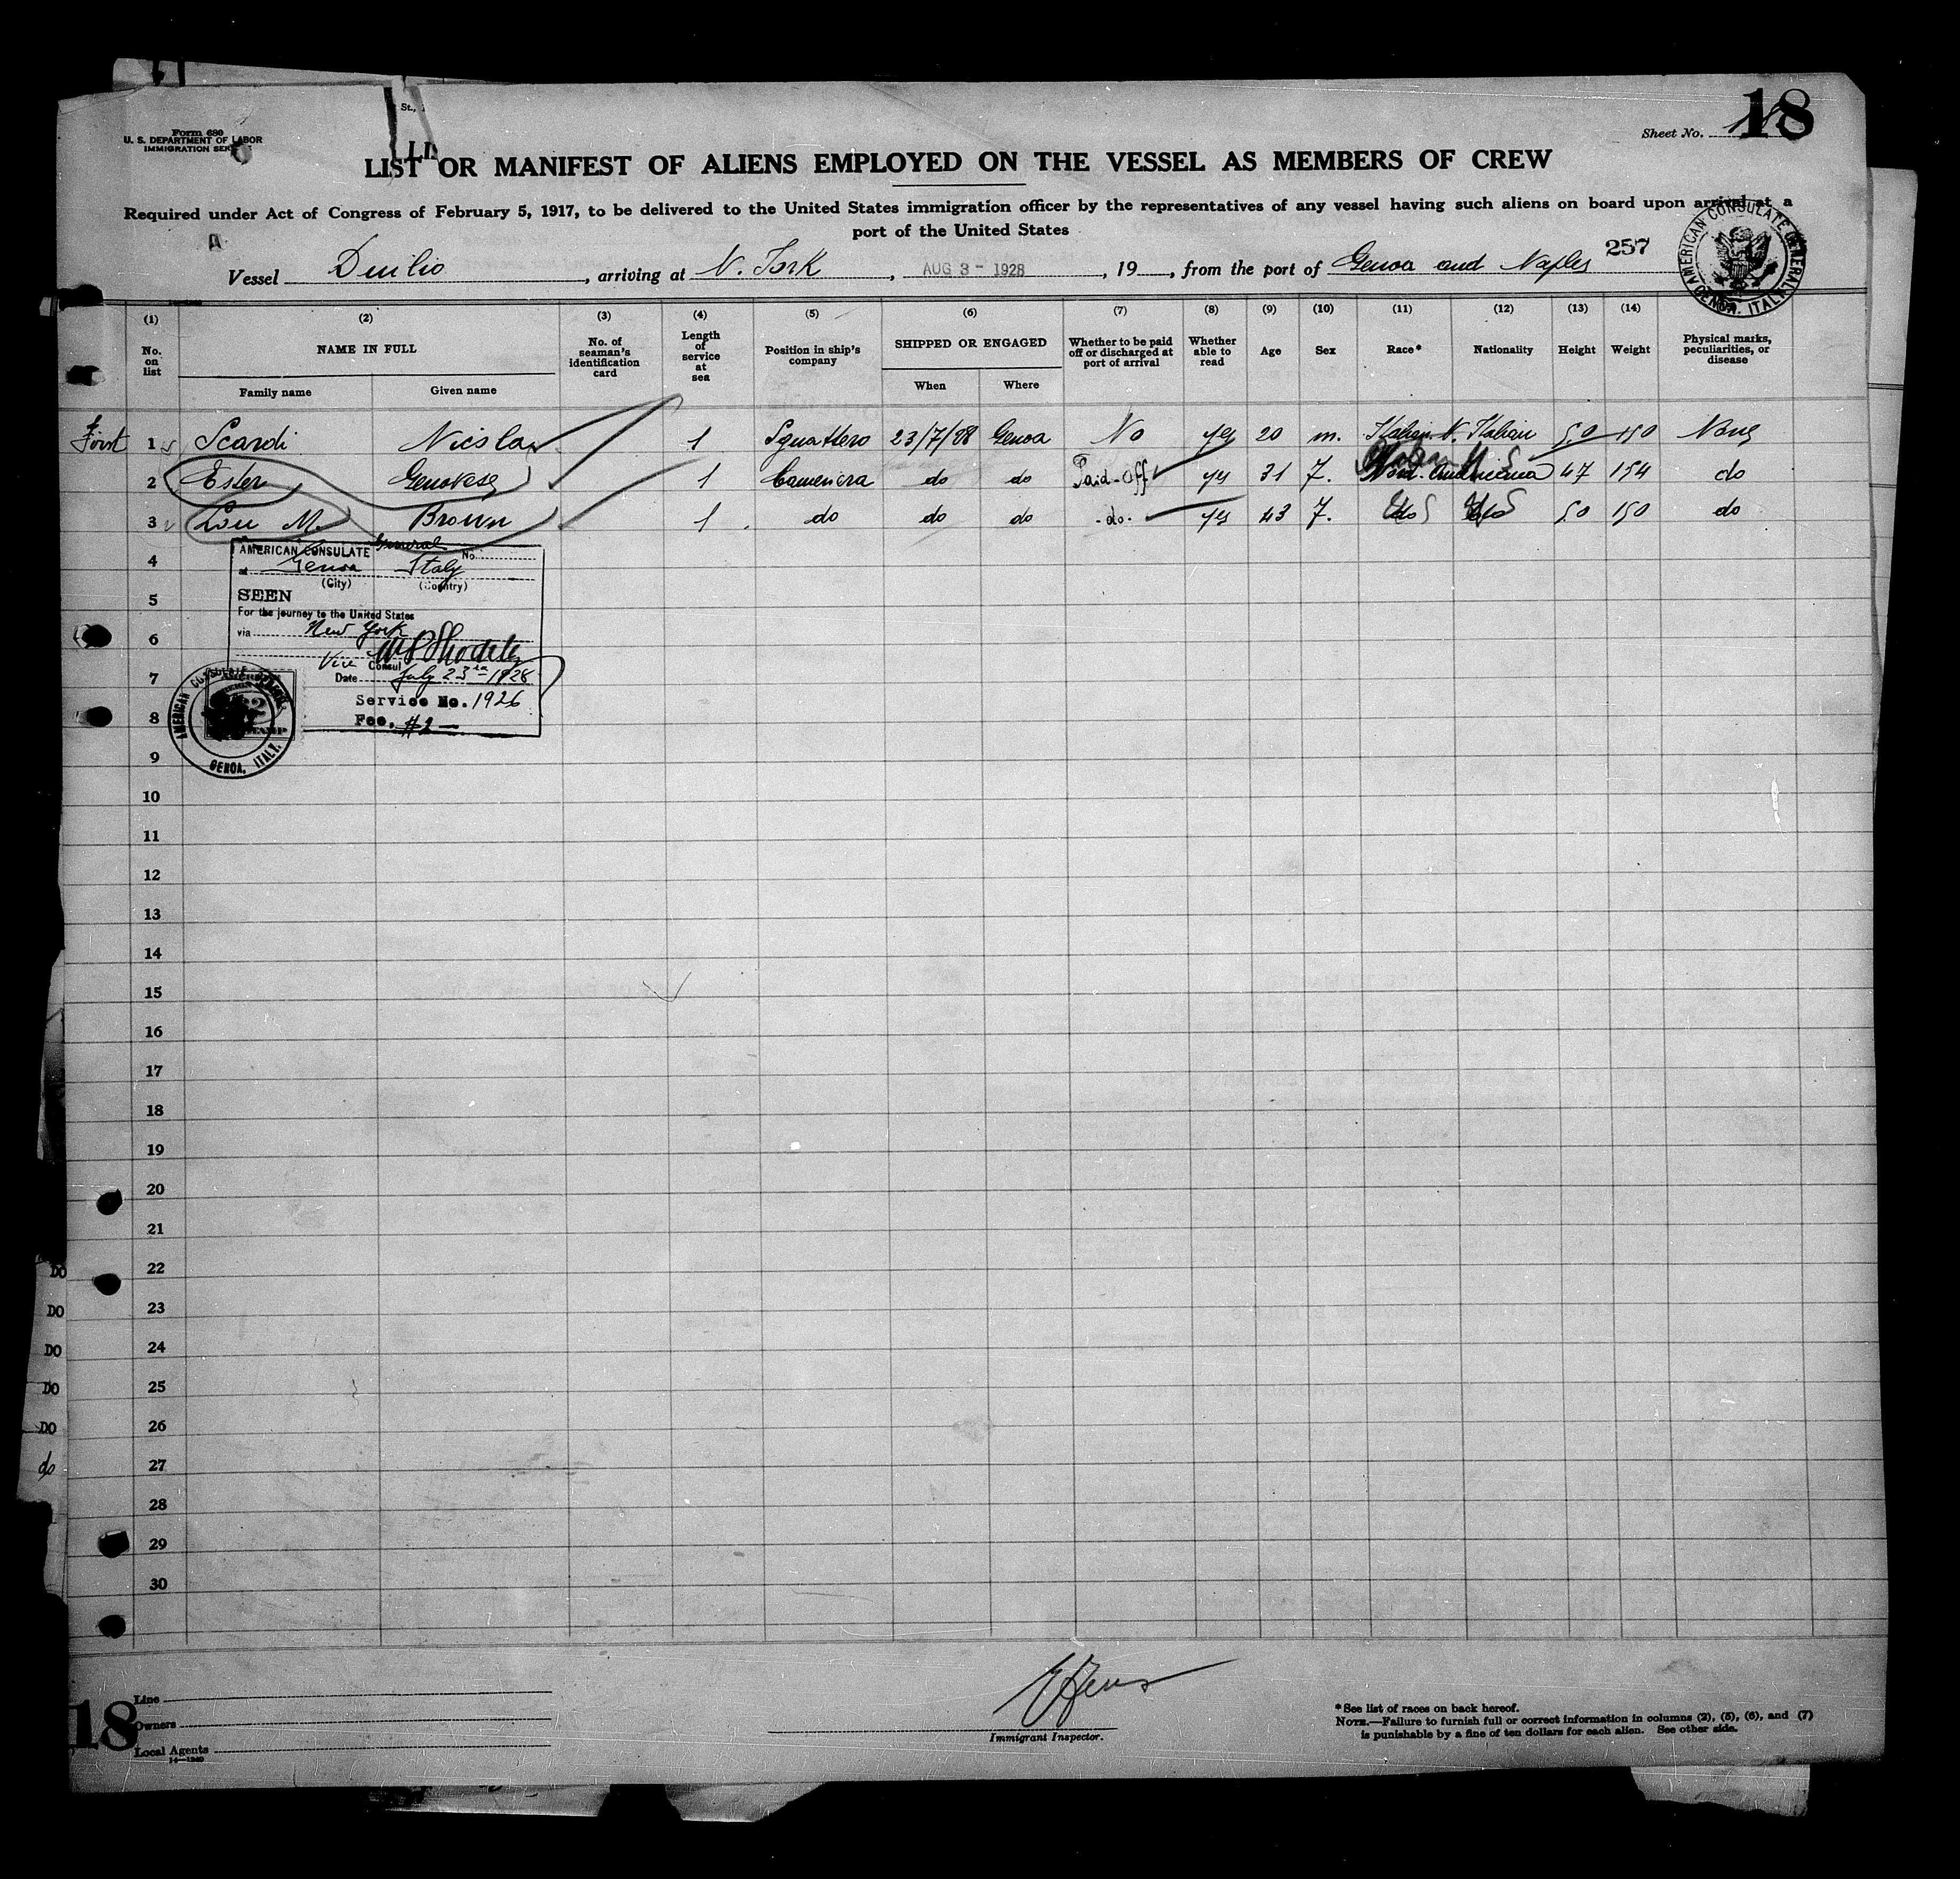 St.,
Form 680
U. S. DEPARTMENT OF LABOR
IMMIGRATION SERVICE
Sheet No. 18
LIST OR MANIFEST OF ALIENS EMPLOYED ON THE VESSEL AS MEMBERS OF CREW
Required under Act of Congress of February 5, 1917, to be delivered to the United States immigration officer by the representatives of any vessel having such aliens on board upon arrival at a
port of the United States
Vessel Duilio, arriving at N. York, AUG 3 - 1928, 19, from the port of Genoa and Naples 257
AMERICAN CONSULATE GENERAL GENOA, ITALY
(1) (2) (3) (4) (5) (6) (7) (8) (9) (10) (11) (12) (13) (14)
No. on list NAME IN FULL No. of seaman's identification card Length of service at sea Position in ship's company SHIPPED OR ENGAGED Whether to be paid off or discharged at port of arrival Whether able to read Age Sex Race* Nationality Height Weight Physical marks, peculiarities, or disease
Family name Given name When Where
First 1 Scardi Nicola 1 Sguattero 23/7/28 Genoa No yes 20 m. Italian N. Italian 5.0 150 None
2 Ester Genovese 1 Cameriera do do Paid-off yes 31 F. Nord-Americana 47 154 do
3 Lou M. Brown 1 do do do -do- yes 43 F. do US do US 5.0 150 do
4
5
6
7
8
9
10
11
12
13
14
15
16
17
18
19
20
21
22
23
24
25
26
27
28
29
30
AMERICAN CONSULATE General No.
at Genoa Italy
(City) (Country)
SEEN
For the journey to the United States
via New York
Vice Consul
Date July 23rd 1928
Service No. 1926
Fee, #2
AMERICAN CONSULATE GENERAL GENOA, ITALY.
DO
DO
DO
DO
DO
do
18
Line
Owners
Local Agents
14-1240
Immigrant Inspector.
*See list of races on back hereof.
NOTE.—Failure to furnish full or correct information in columns (2), (5), (6), and (7)
is punishable by a fine of ten dollars for each alien. See other side.